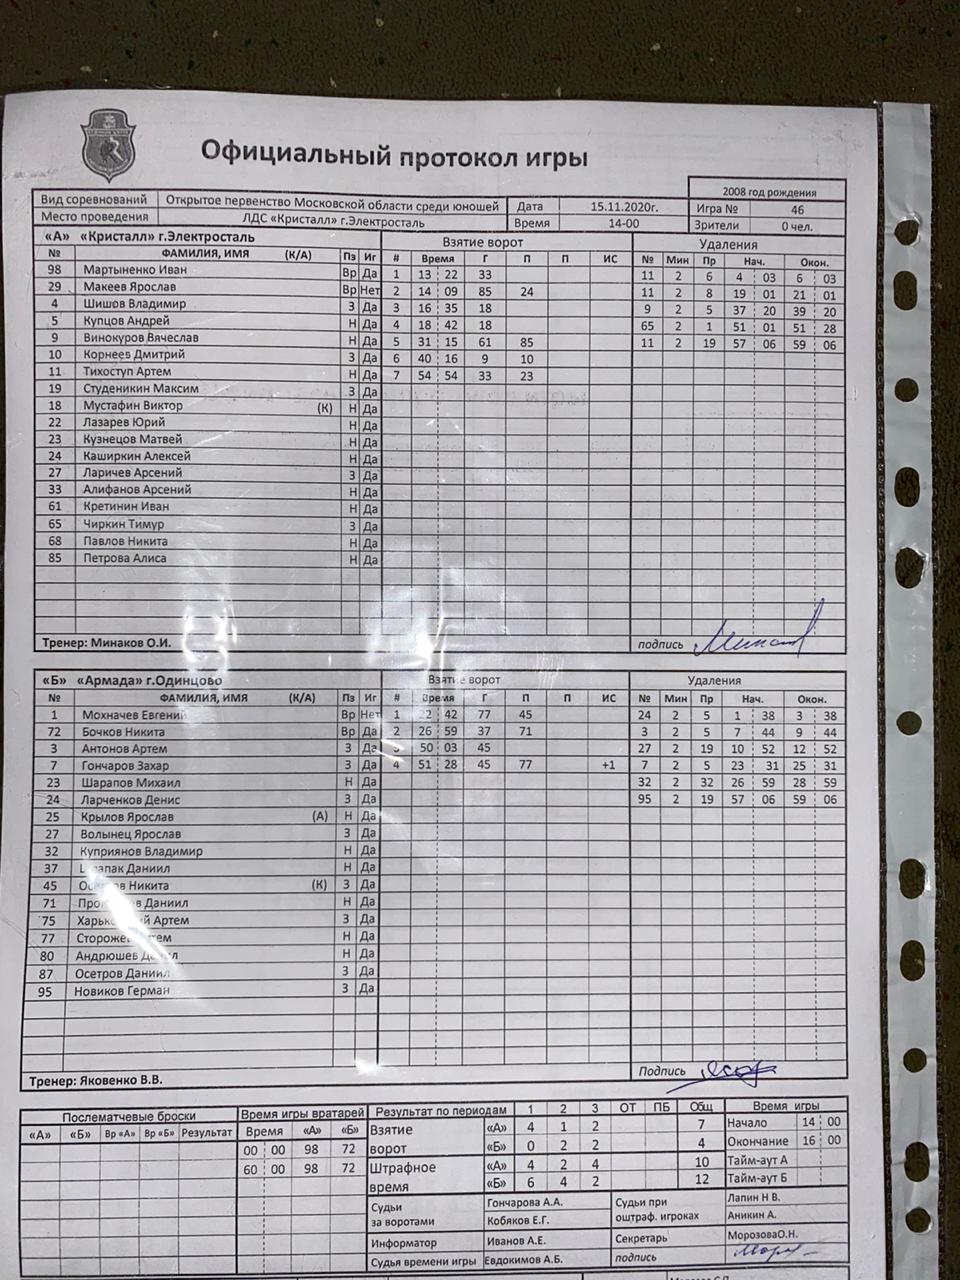 Официальный протокол игры
2008 год рождения
Вид соревнований Открытое первенство Московской области среди юношей Дата 15.11.2020г. Игра № 46
Место проведения ЛДС «Кристалл» г.Электросталь Время 14-00 Зрители 0 чел.
«А» «Кристалл» г.Электросталь Взятие ворот Удаления
№ ФАМИЛИЯ, ИМЯ (К/А) Пз Иг # Время Г П П ИС № Мин Пр Нач. Окон.
98 Мартыненко Иван Вр Да 1 13 22 33 11 2 6 4 03 6 03
29 Макеев Ярослав Вр Нет 2 14 09 85 24 11 2 8 19 01 21 01
4 Шишов Владимир З Да 3 16 35 18 9 2 5 37 20 39 20
5 Купцов Андрей Н Да 4 18 42 18 65 2 1 51 01 51 28
9 Винокуров Вячеслав Н Да 5 31 15 61 85 11 2 19 57 06 59 06
10 Корнеев Дмитрий З Да 6 40 16 9 10
11 Тихоступ Артем Н Да 7 54 54 33 23
19 Студеникин Максим З Да
18 Мустафин Виктор (К) Н Да
22 Лазарев Юрий Н Да
23 Кузнецов Матвей Н Да
24 Каширкин Алексей Н Да
27 Ларичев Арсений З Да
33 Алифанов Арсений Н Да
61 Кретинин Иван Н Да
65 Чиркин Тимур З Да
68 Павлов Никита Н Да
85 Петрова Алиса Н Да
Тренер: Минаков О.И. подпись
«Б» «Армада» г.Одинцово Взятие ворот Удаления
№ ФАМИЛИЯ, ИМЯ (К/А) Пз Иг # Время Г П П ИС № Мин Пр Нач. Окон.
1 Мохначев Евгений Вр Нет 1 22 42 77 45 24 2 5 1 38 3 38
72 Бочков Никита Вр Да 2 26 59 37 71 3 2 5 7 44 9 44
3 Антонов Артем З Да 3 50 03 45 27 2 19 10 52 12 52
7 Гончаров Захар З Да 4 51 28 45 77 +1 7 2 5 23 31 25 31
23 Шарапов Михаил Н Да 32 2 32 26 59 28 59
24 Ларченков Денис З Да 95 2 19 57 06 59 06
25 Крылов Ярослав (А) Н Да
27 Волынец Ярослав З Да
32 Куприянов Владимир Н Да
37 Даниил Н Да
45 Никита (К) З Да
71 Даниил Н Да
75 Артем З Да
77 Н Да
80 Андрюшев Н Да
87 Осетров Даниил З Да
95 Новиков Герман З Да
Тренер: Яковенко В.В. Подпись
Послематчевые броски Время игры вратарей Результат по периодам 1 2 3 ОТ ПБ Общ Время игры
«А» «Б» Вр «А» Вр «Б» Результат Время «А» «Б» Взятие ворот «А» 4 1 2 7 Начало 14 00
00 00 98 72 «Б» 0 2 2 4 Окончание 16 00
60 00 98 72 Штрафное время «А» 4 2 4 10 Тайм-аут А
«Б» 6 4 2 12 Тайм-аут Б
Судьи за воротами Гончарова А.А. Судьи при оштраф. игроках Лапин Н В.
Кобяков Е.Г. Аникин А.
Информатор Иванов А.Е. Секретарь МорозоваО.Н.
Судья времени игры Евдокимов А.Б. подпись